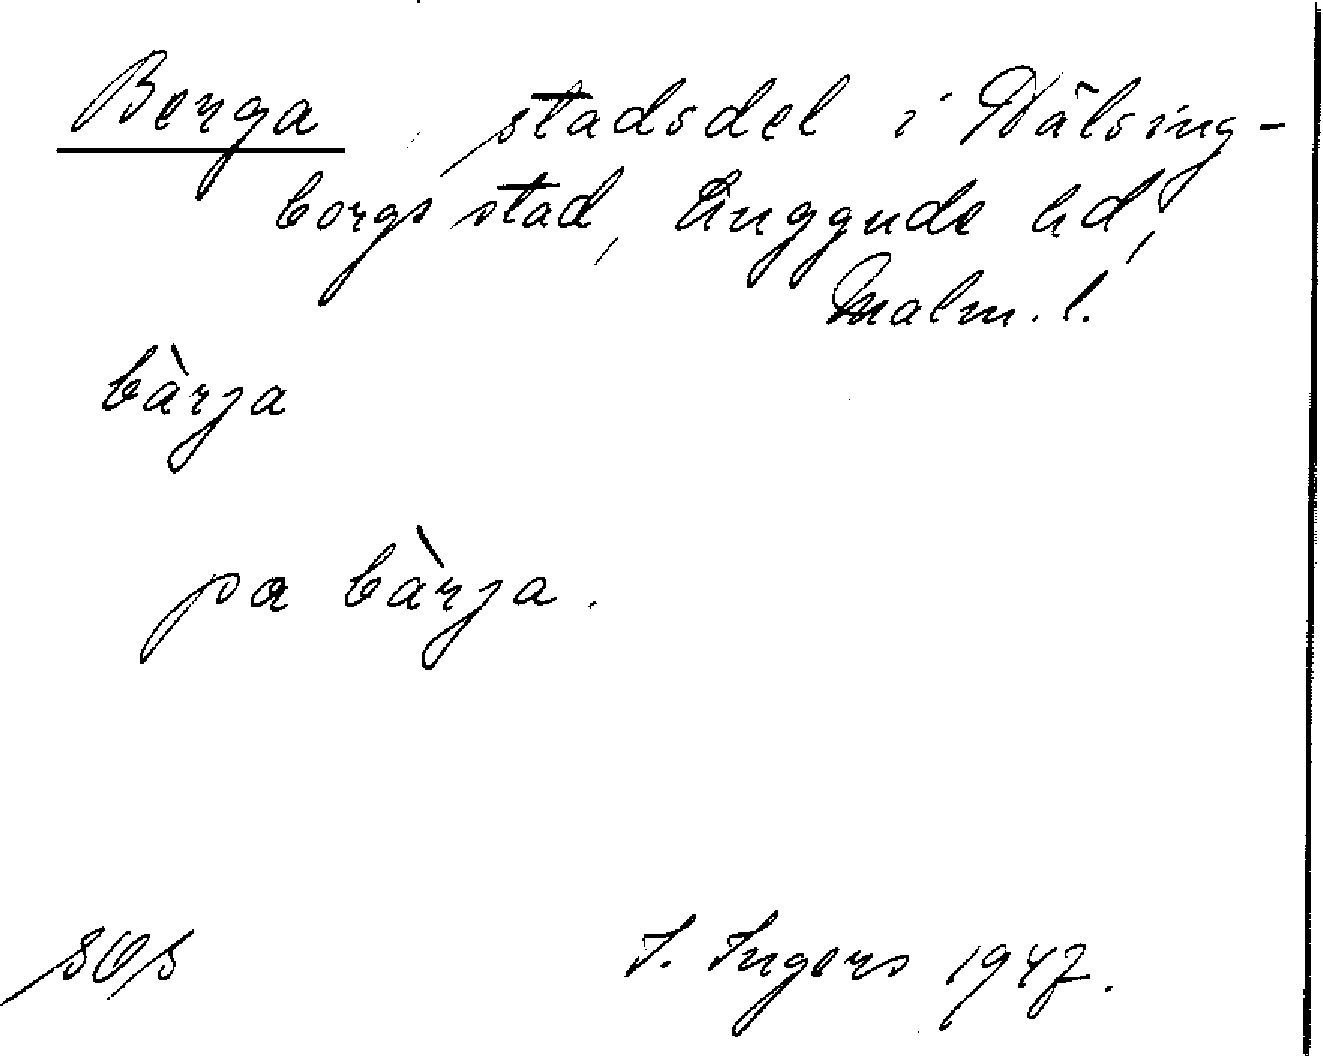 Berga, stadsdel i Hälsing-
borgs stad, Luggude hd,
Malm. l.
bàrja
pa bàrja.
I. Ingers 1947.